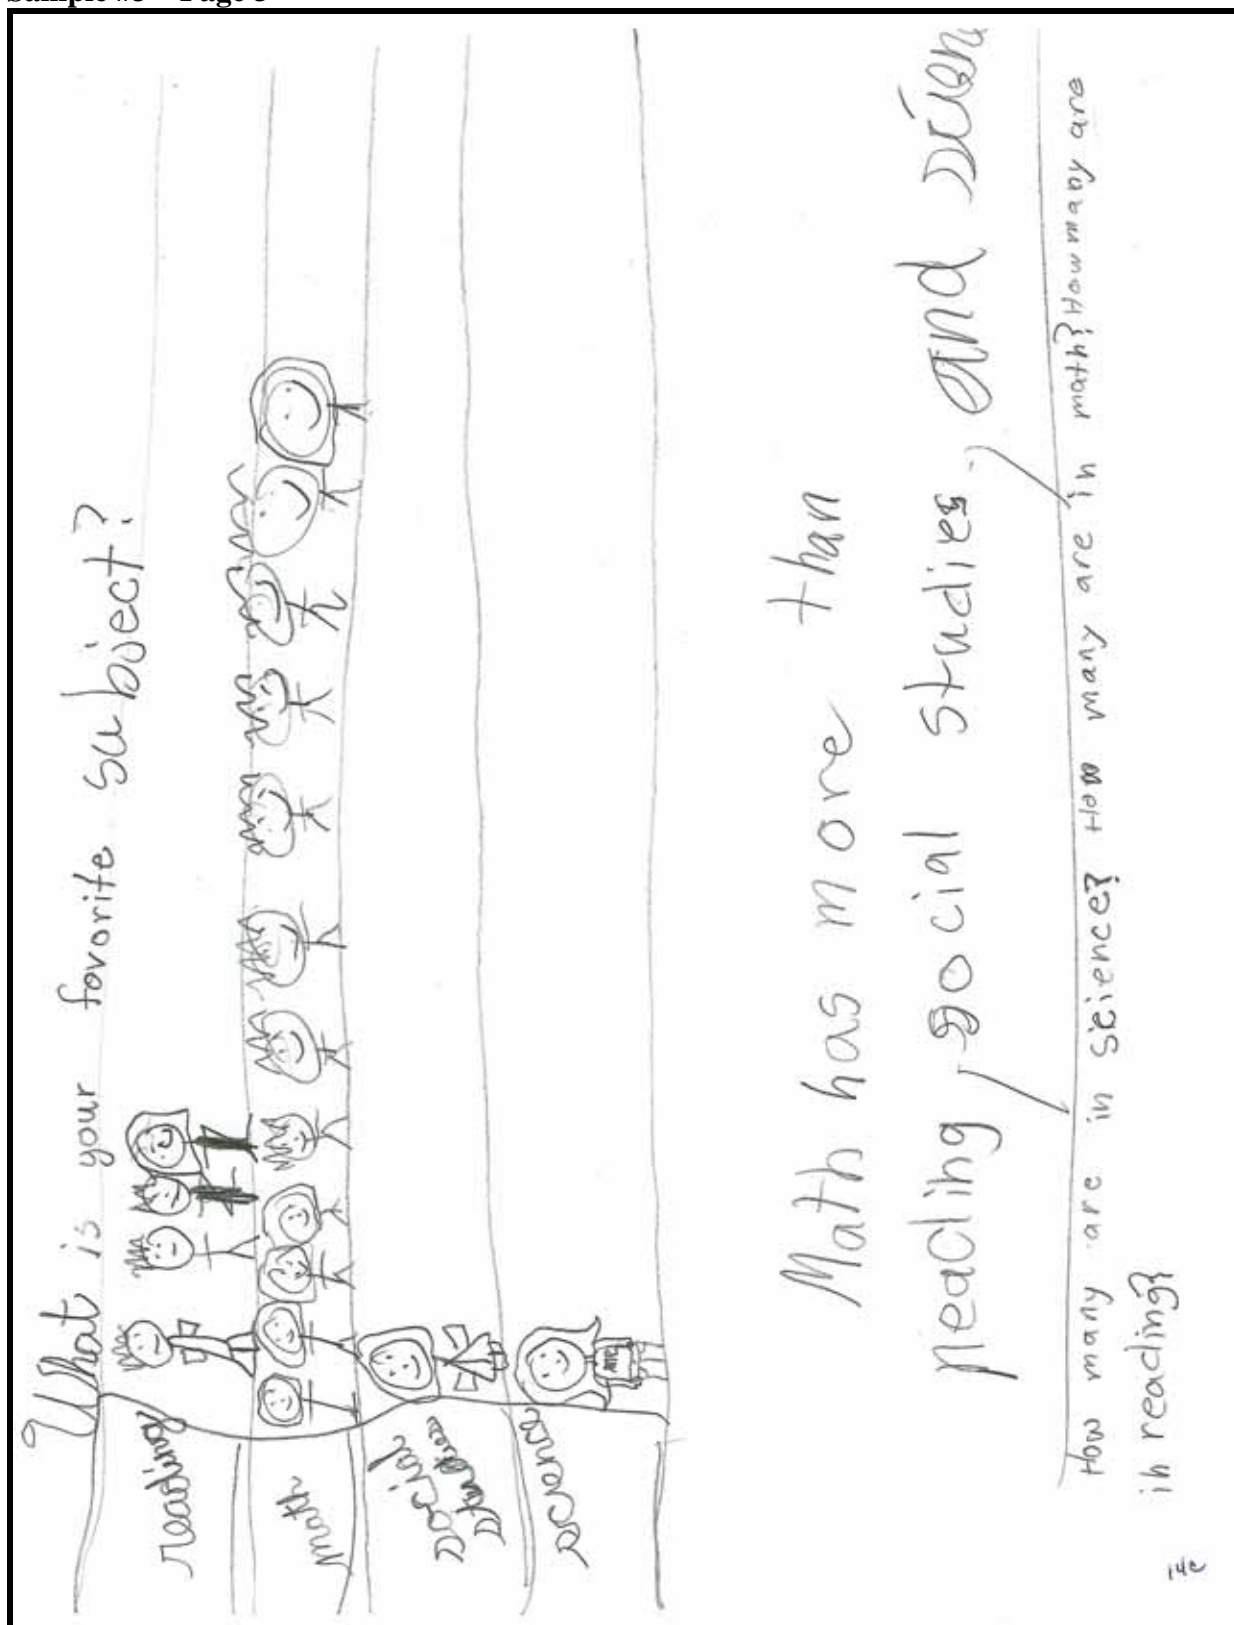 What is your fovorite subject?
reading
math
social studies
science
Math has more than
reading, social studies, and scien
How many are in science? How many are in math? How many are
in reading?
14c